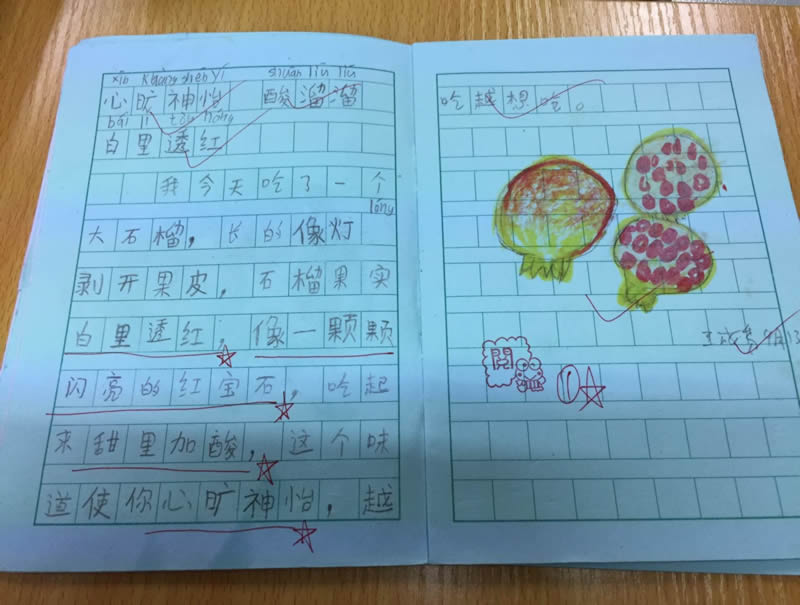 xīn kuàng shén yí  suān liū liū
心旷神怡 酸溜溜
bái lǐ tòu hóng
白里透红
我今天吃了一个
lóng
大石榴，长的像灯
剥开果皮，石榴果实
白里透红；像一颗颗
闪亮的红宝石，吃起
来甜里加酸，这个味
道使你心旷神怡，越
吃越想吃。
閱